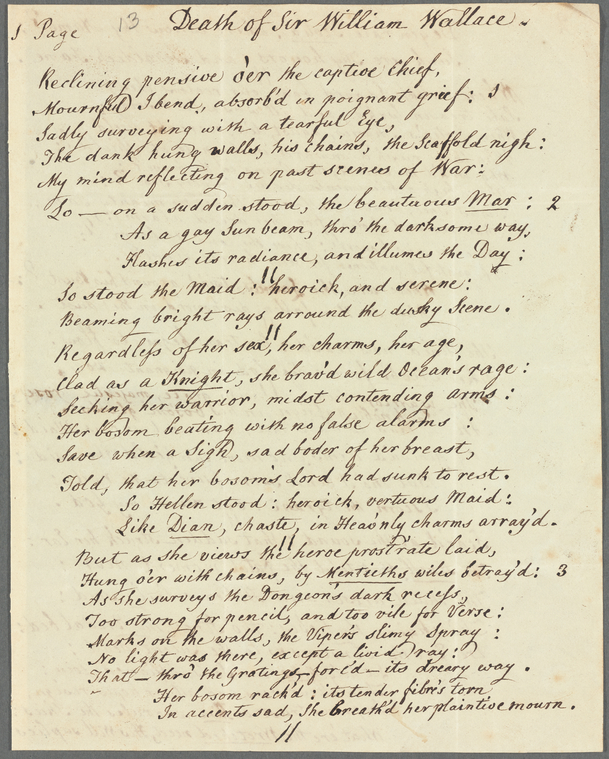 1 Page 13 Death of Sir William Wallace.
Reclining pensive o'er the captive Chief,
Mournful I bend, absorb'd in poignant grief: 1
Sadly surveying with a tearful Eye,
The dank hung walls, his chains, the Scaffold nigh:
My mind reflecting on past scenes of War:
Lo — on a sudden stood, the beautuous Mar : 2
As a gay Sun beam, thro' the darksome way,
Flashes its radiance, and illumes the Day :
So stood the Maid : heroick, and serene:
Beaming bright rays arround the dusky Scene.
Regardless of her sex, her charms, her age,
Clad as a Knight, she brav'd wild Ocean's rage:
Seeking her warrior, midst contending arms :
Her bosom beating with no false alarms :
Save when a Sigh, sad boder of her breast,
Told, that her bosom's Lord had sunk to rest.
So Hellen stood : heroick, vertuous Maid:
Like Dian, chaste, in Heav'nly charms array'd.
But as she views the heroe prostrate laid,
Hung o'er with chains, by Menteiths wiles betray'd: 3
As she surveys the Dongeon's dark recess,
Too strong for pencil, and too vile for Verse:
Marks on the walls, the Viper's slimy Spray :
No light was there, except a livid ray:
That — thro' the Gratings — forc'd — its dreary way.
Her bosom rack'd : its tender fibre's torn
In accents sad, She break'd her plaintive mourn.